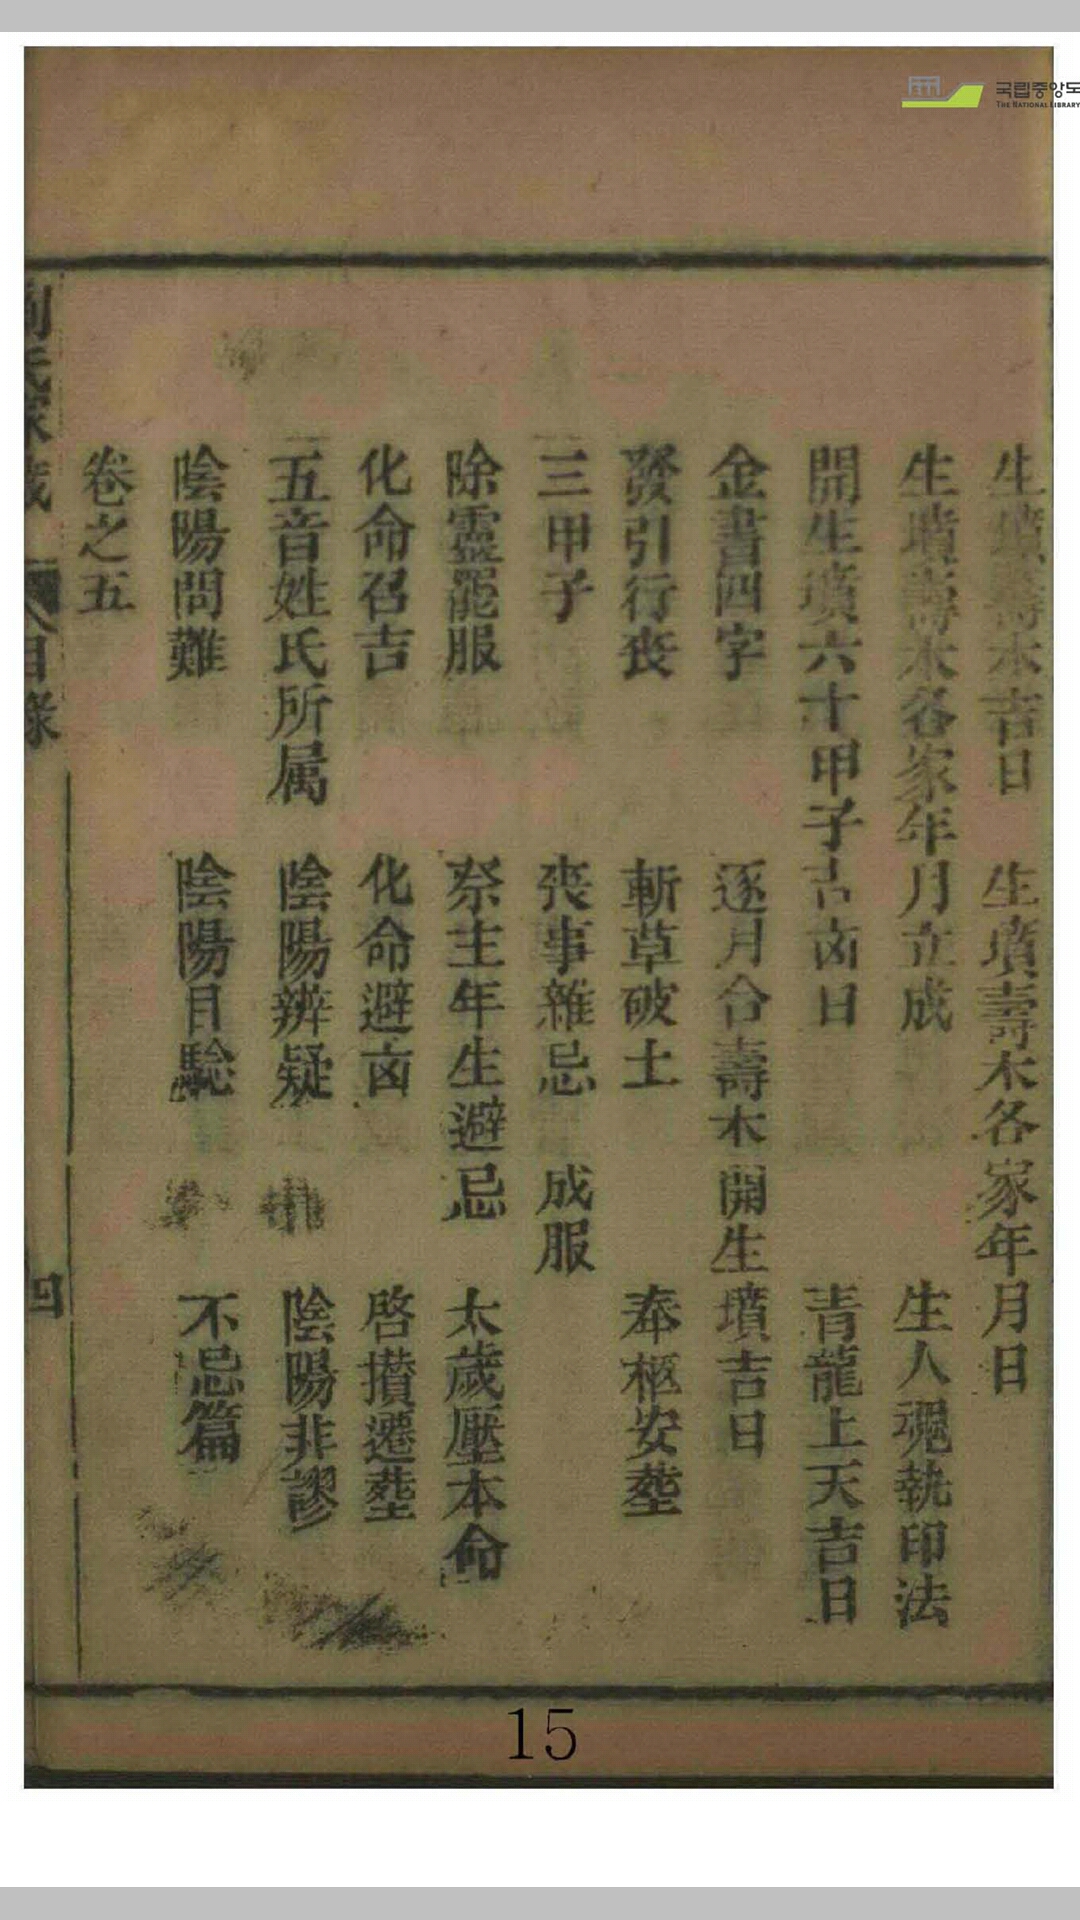 국립중앙도
THE NATIONAL LIBRARY
生墳壽木吉日　生墳壽木各家年月日
生墳壽木各家年月立成　生人魂執印法
開生墳六十甲子吉凶日　青龍上天吉日
金書四字　逐月合壽木開生墳吉日
發引行喪　斬草破土　奉柩安塟
三甲子　喪事雜忌　成服
除靈罷服　祭主年生避忌　太歲壓本命
化命召吉　化命避凶　啓攢遷塟
五音姓氏所属　陰陽辨疑　陰陽非謬
陰陽問難　陰陽目騐　不忌篇
卷之五
目錄　四
15